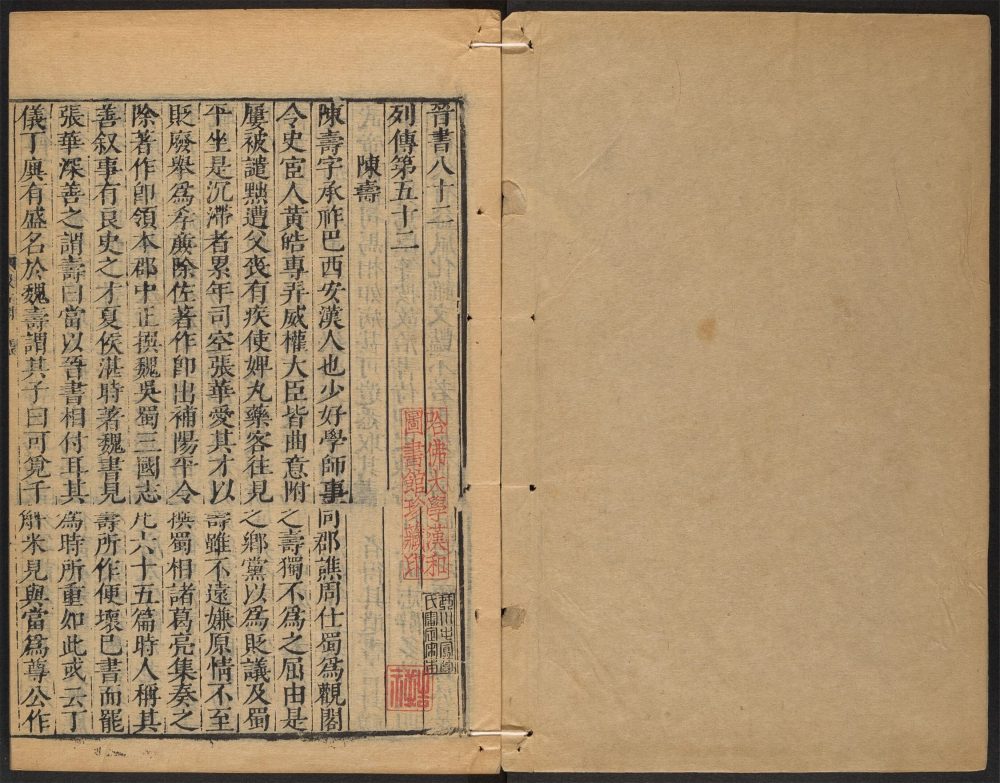 晉書八十二
列傳第五十二
陳壽
陳壽字承祚巴西安漢人也少好學師事同郡譙周仕蜀爲觀閣
令史宦人黃皓專弄威權大臣皆曲意附之壽獨不爲之屈由是
屢被譴黜遭父喪有疾使婢丸藥客往見之鄉黨以爲貶議及蜀
平坐是沉滯者累年司空張華愛其才以壽雖不遠嫌原情不至
貶廢舉爲孝廉除佐著作郎出補陽平令撰蜀相諸葛亮集奏之
除著作郎領本郡中正撰魏吳蜀三國志凡六十五篇時人稱其
善叙事有良史之才夏侯湛時著魏書見壽所作便壞已書而罷
張華深善之謂壽曰當以晉書相付耳其爲時所重如此或云丁
儀丁廙有盛名於魏壽謂其子曰可覓千斛米見與當爲尊公作
哈佛大學漢和
圖書館珍藏印